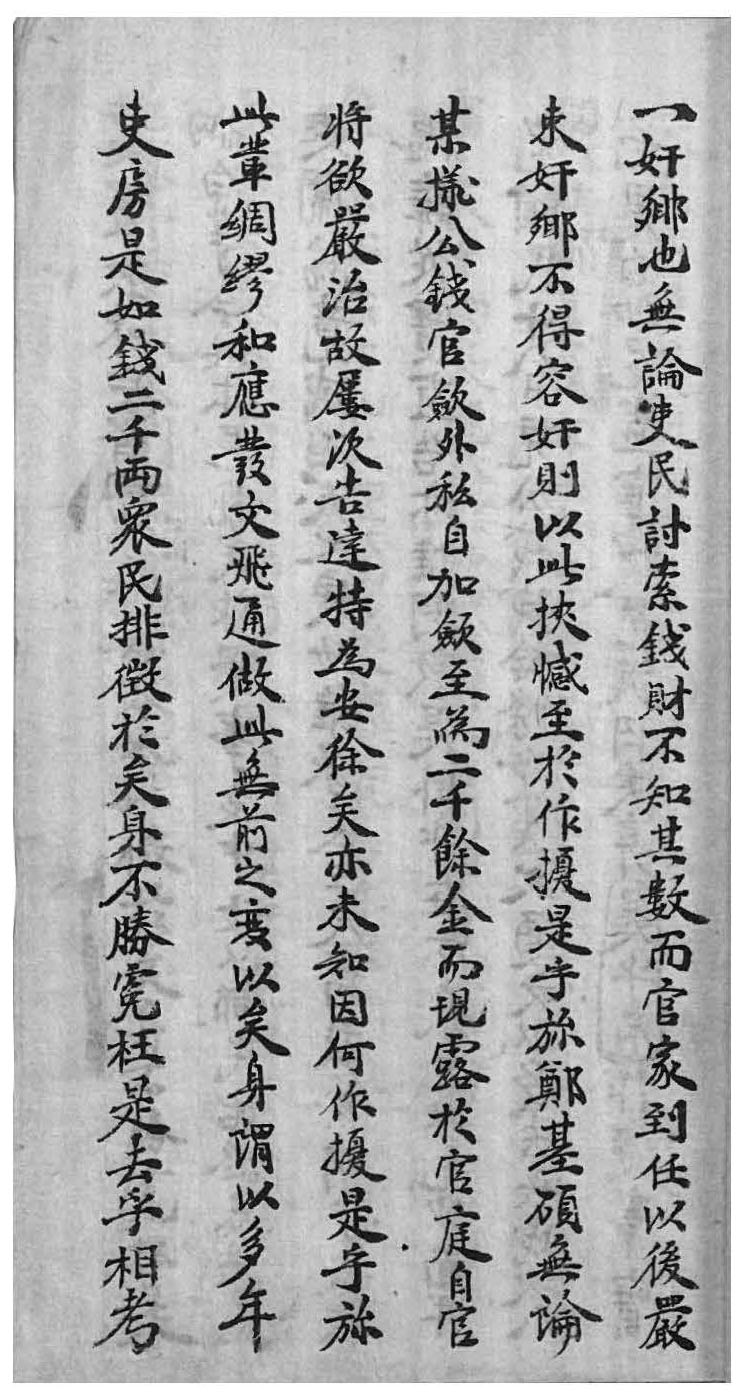 一奸鄕也無論吏民討索錢財不知其數而官家到任以後嚴
束奸鄕不得容奸則以此挾憾至於作擾是乎旀鄭基碩無論
某㨾公錢官歛外私自加歛至爲二千餘金而現露於官庭自官
將欲嚴治故屢次告達特爲安徐矣亦未知因何作擾是乎旀
此輩綢繆和應發文飛通做此無前之変以矣身謂以多年
吏房是如錢二千両衆民排徵於矣身不勝寃枉是去乎相考